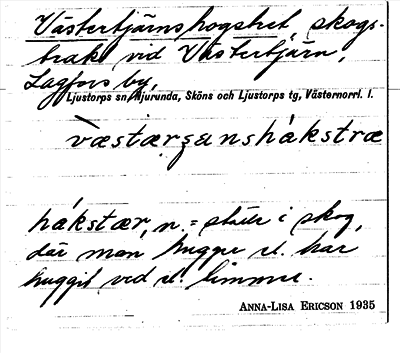 Västertjärnshogstret, skogs-
brak vid Västertjärn,
Lagfors by,
Ljustorps sn, Njurunda, Sköns och Ljustorps tg, Västernorrl. l.
hákstær, n. = ställe i skog,
där man hugger el. har
huggit ved el. timmer.
ANNA-LISA ERICSON 1935